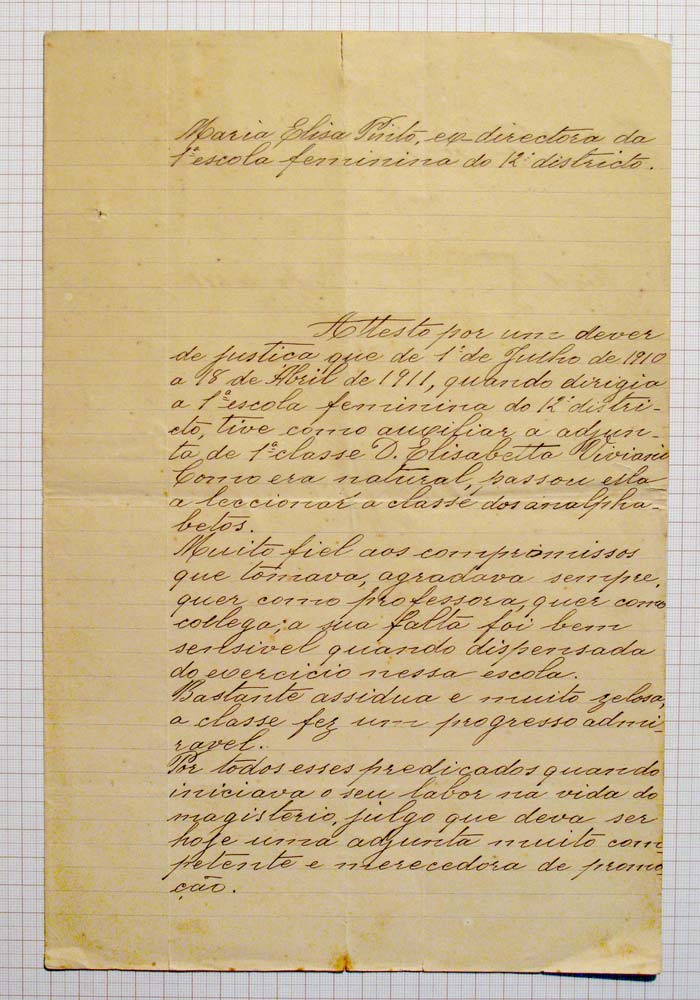 Maria Elisa Pinto, ex-directora da
1ª escola feminina do 12º districto.
Attesto por um dever
de justiça que de 1º de Julho de 1910
a 18 de Abril de 1911, quando dirigia
a 1ª escola feminina do 12º distri-
cto, tive como auxiliar a adjun-
ta de 1ª classe D. Elisabetta Viviani
Como era natural, passou ella
a leccionar a classe dos analpha-
betos.
Muito fiel aos compromissos
que tomava, agradava sempre,
quer como professora, quer como
collega; a sua falta foi bem
sensivel quando dispensada
do exercicio nessa escola.
Bastante assidua e muito zelosa,
a classe fez um progresso admi-
ravel.
Por todos esses predicados quando
iniciava o seu labor na vida do
magisterio, julgo que deva ser
hoje uma adjunta muito com
petente e merecedora de promo-
ção.